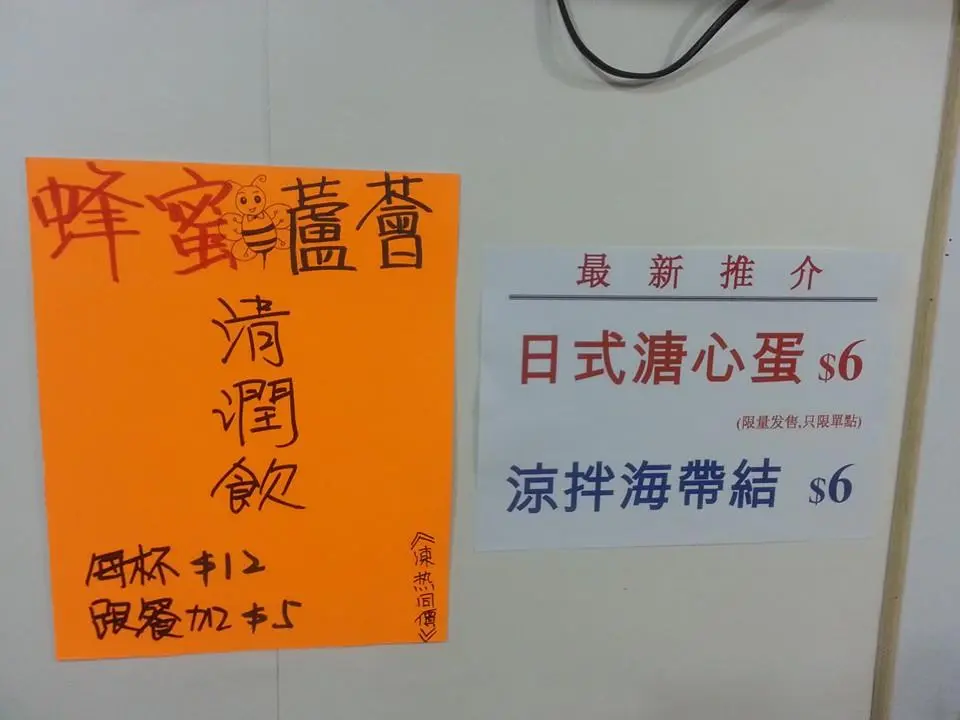 蜂蜜蘆薈
清
潤
飲
每杯 $12
跟餐加 $5
《凍热同價》
最新推介
日式溏心蛋 $6
(限量发售,只限單點)
涼拌海帶結 $6